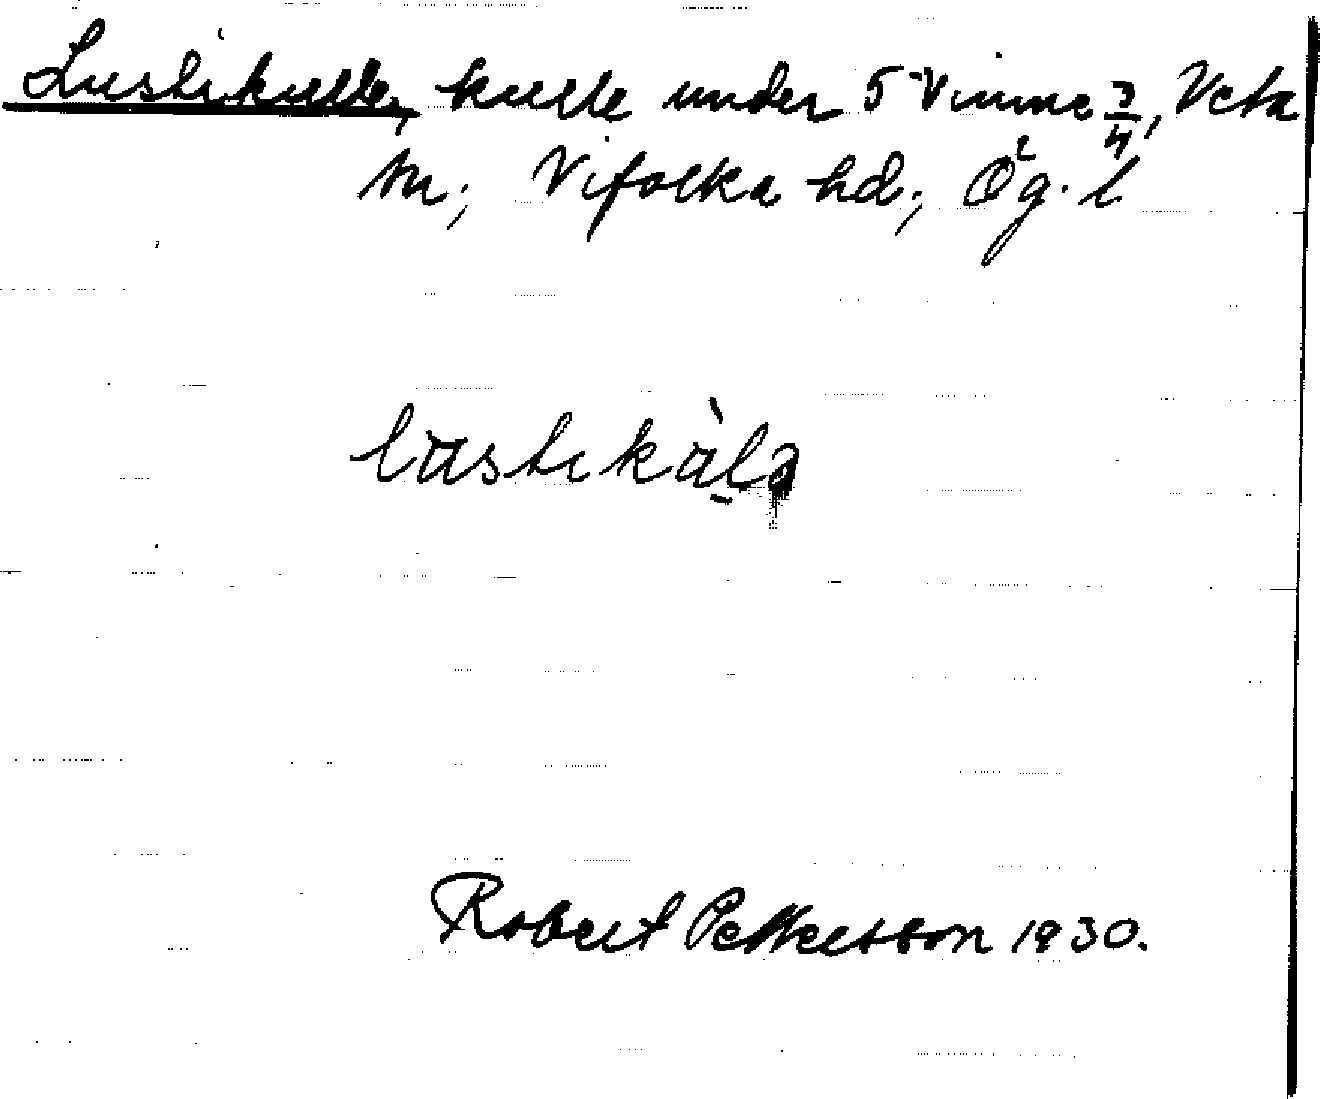 Lustikulle, kulle under 5 Vimme 3/4, Veta
sn; Vifolka hd; Ög. l
lustikùlə
Robert Pettersson 1930.